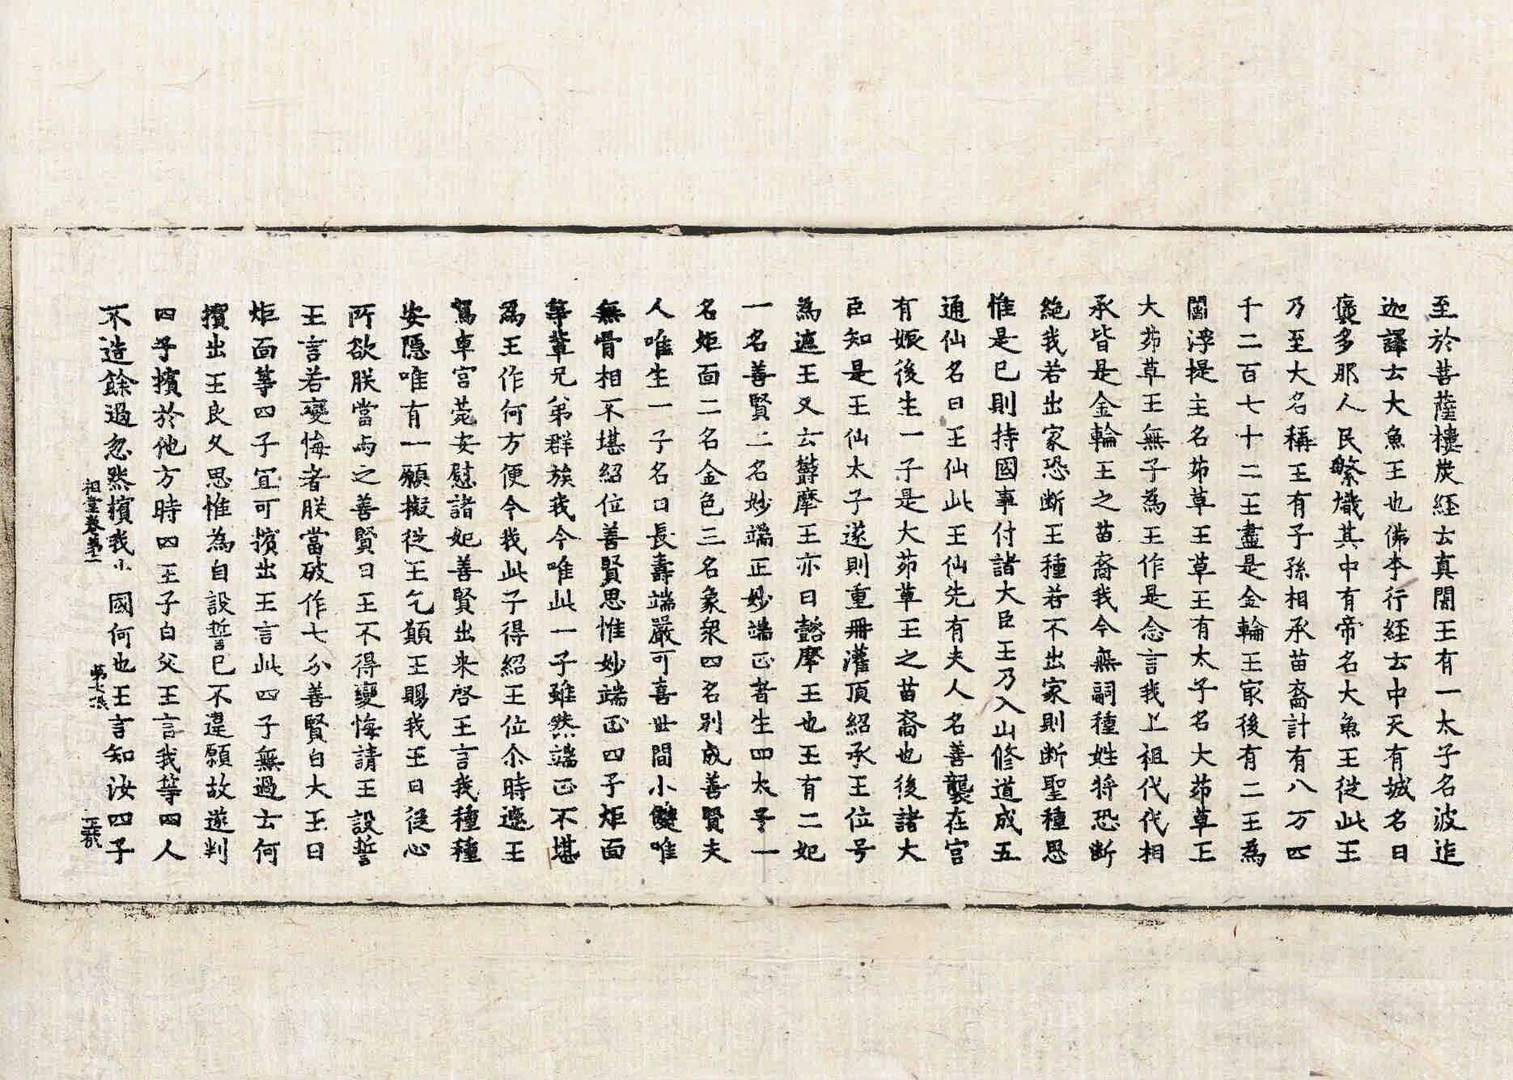 至於菩薩樓炭経云真闍王有一太子名波延
迦譯云大魚王也佛本行経云中天有城名曰
褒多那人民繁熾其中有帝名大魚王従此王
乃至大名稱王有子孫相承苗裔計有八万四
千二百七十二王盡是金輪王㝡後有二王為
閻浮提主名茆草王草王有太子名大茆草王
大茆草王無子為王作是念言我上祖代代相
承皆是金輪王之苗裔我今無嗣種姓将恐断
絶我若出家恐断王種若不出家則断聖種思
惟是已則持國事付諸大臣王乃入山修道成五
通仙名曰王仙此王仙先有夫人名善襲在宮
有娠後生一子是大茆草王之苗裔也後諸大
臣知是王仙太子遂則重冊灌頂紹承王位号
為遮王又云欝摩王亦曰懿摩王也王有二妃
一名善賢二名妙端正妙端正者生四太子一
名炬面二名金色三名象衆四名別成善賢夫
人唯生一子名曰長壽端嚴可喜世間小雙唯
無骨相不堪紹位善賢思惟妙端正四子炬面
等輩兄弟群族我今唯此一子雖然端正不堪
為王作何方便令我此子得紹王位尒時遮王
駕車宮菀安慰諸妃善賢出来啓王言我種種
安隠唯有一願擬従王乞願王賜我王曰従心
所欲朕當与之善賢曰王不得變悔請王設誓
王言若變悔者朕當破作七分善賢白大王曰
炬面等四子宜可擯出王言此四子無過云何
擯出王良久思惟為自設誓已不違願故遂判
四子擯於他方時四王子白父王言我等四人
不造餘過忽然擯我小國何也王言知汝四子
祖堂卷第一 第七張